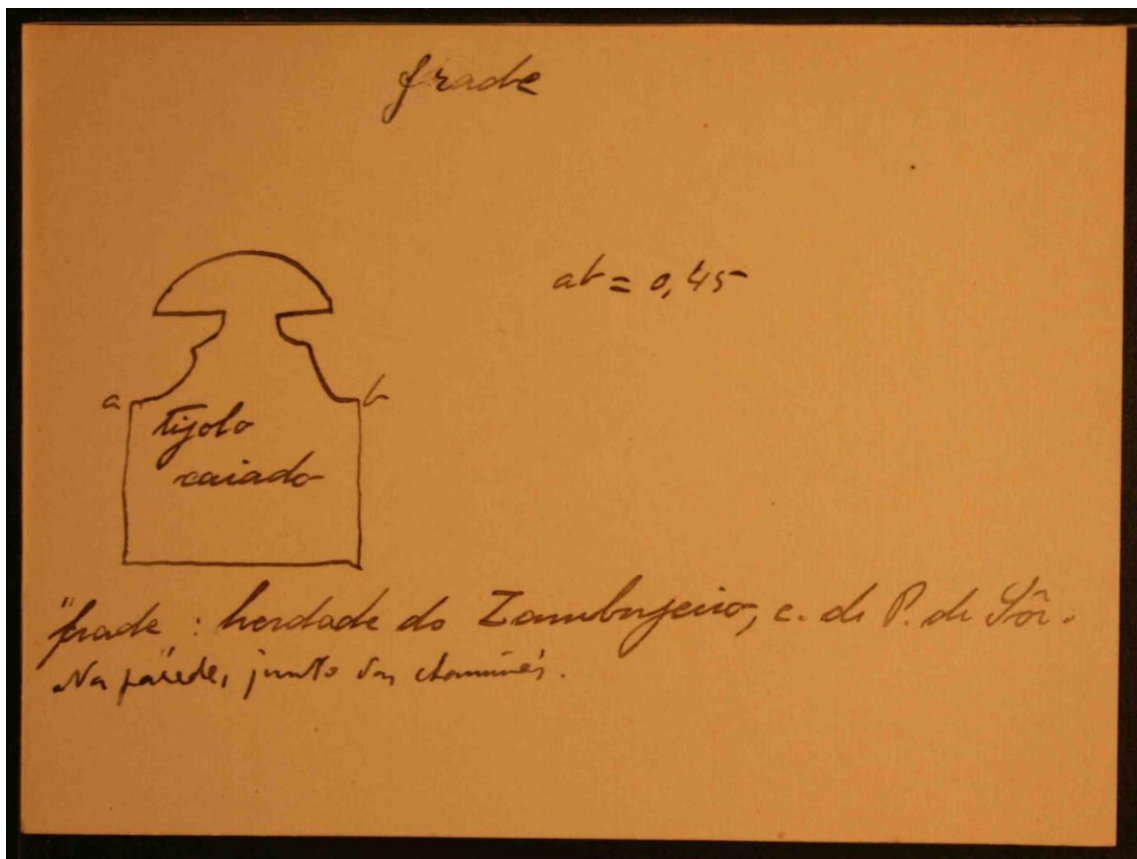 frade
ab = 0,45
a
b
tijolo
caiado
"frade": herdade do Zambujeiro, c. de P. de Sôr.
Na parede, junto das chaminés.